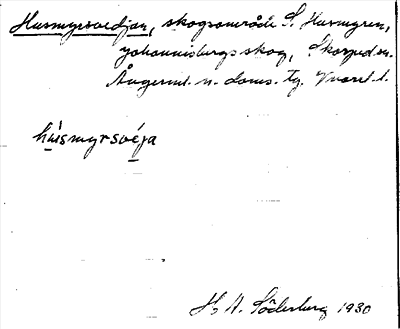 Husmyrsvedjan, skogsområde S. Husmyren,
Johannisbergs skog, Skorped sn.
Ångerml. n. doms. tg. Vnorrl. l.
húsmyrsvéja
H. A. Söderberg 1930